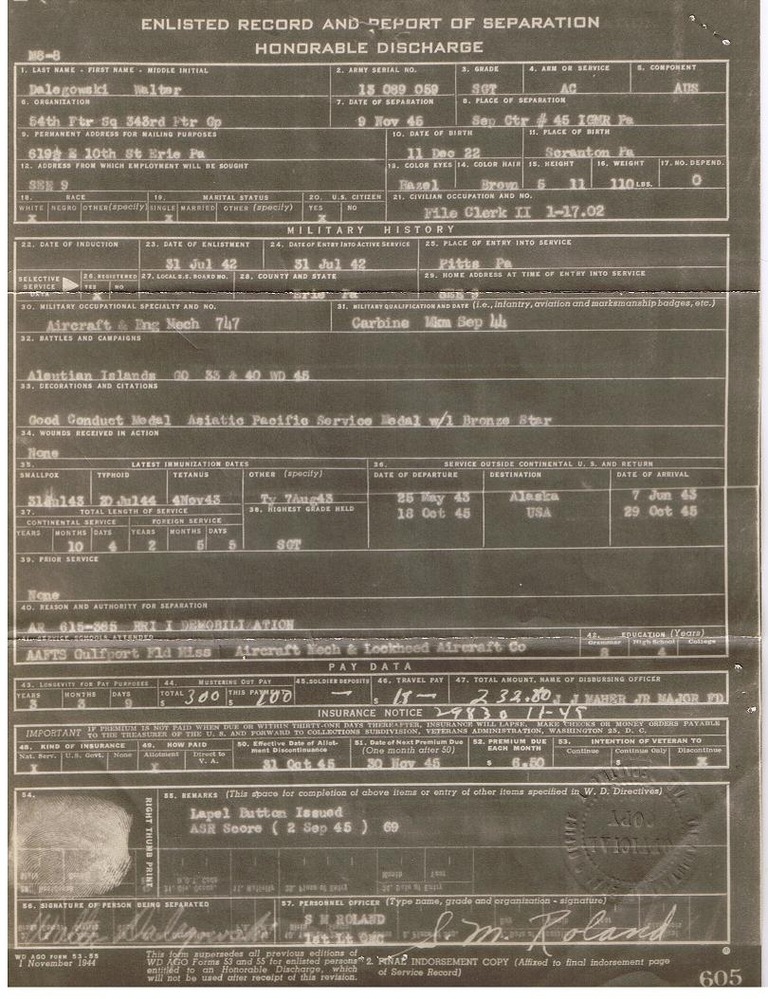 ENLISTED RECORD AND REPORT OF SEPARATION
HONORABLE DISCHARGE
1. LAST NAME - FIRST NAME - MIDDLE INITIAL
2. ARMY SERIAL NO.
3. GRADE
4. ARM OR SERVICE
5. COMPONENT
Dalegowski Walter
13 089 059
SGT
AC
AUS
6. ORGANIZATION
7. DATE OF SEPARATION
8. PLACE OF SEPARATION
54th Ftr Sq 343rd Ftr Gp
9 Nov 45
Sep Ctr # 45 IGMR Pa
9. PERMANENT ADDRESS FOR MAILING PURPOSES
10. DATE OF BIRTH
11. PLACE OF BIRTH
E 10th St Erie Pa
11 Dec 22
Scranton Pa
12. ADDRESS FROM WHICH EMPLOYMENT WILL BE SOUGHT
13. COLOR EYES
14. COLOR HAIR
15. HEIGHT
16. WEIGHT
17. NO. DEPEND.
SEE 9
Hazel
Brown
5 11
110 LBS.
0
18. RACE
19. MARITAL STATUS
20. U.S. CITIZEN
21. CIVILIAN OCCUPATION AND NO.
WHITE NEGRO OTHER (specify) SINGLE MARRIED OTHER (specify) YES NO
X X X
File Clerk II 1-17.02
MILITARY HISTORY
22. DATE OF INDUCTION
23. DATE OF ENLISTMENT
24. DATE OF ENTRY INTO ACTIVE SERVICE
25. PLACE OF ENTRY INTO SERVICE
31 Jul 42
31 Jul 42
Pitts Pa
SELECTIVE SERVICE DATA
26. REGISTERED
YES NO
X
27. LOCAL U.S. BOARD NO.
28. COUNTY AND STATE
29. HOME ADDRESS AT TIME OF ENTRY INTO SERVICE
Erie Pa
SEE 9
30. MILITARY OCCUPATIONAL SPECIALTY AND NO.
31. MILITARY QUALIFICATION AND DATE (i.e., infantry, aviation and marksmanship badges, etc.)
Aircraft & Eng Mech 747
Carbine Mkm Sep 44
32. BATTLES AND CAMPAIGNS
Aleutian Islands GO 33 & 40 WD 45
33. DECORATIONS AND CITATIONS
Good Conduct Medal Asiatic Pacific Service Medal w/1 Bronze Star
34. WOUNDS RECEIVED IN ACTION
None
35. LATEST IMMUNIZATION DATES
36. SERVICE OUTSIDE CONTINENTAL U. S. AND RETURN
SMALLPOX
TYPHOID
TETANUS
OTHER (specify)
DATE OF DEPARTURE
DESTINATION
DATE OF ARRIVAL
31Jul43
20 Jul44
4Nov43
Ty 7Aug43
25 May 43
Alaska
7 Jun 43
18 Oct 45
USA
29 Oct 45
37. TOTAL LENGTH OF SERVICE
38. HIGHEST GRADE HELD
CONTINENTAL SERVICE
FOREIGN SERVICE
YEARS MONTHS DAYS YEARS MONTHS DAYS
10 4 2 5 5
SGT
39. PRIOR SERVICE
None
40. REASON AND AUTHORITY FOR SEPARATION
AR 615-365 RRI I DEMOBILIZATION
41. SERVICE SCHOOLS ATTENDED
42. EDUCATION (Years)
Grammar High School College
AAFTS Gulfport Fld Miss Aircraft Mech & Lockheed Aircraft Co
8 4
PAY DATA
43. LONGEVITY FOR PAY PURPOSES
44. MUSTERING OUT PAY
45. SOLDIER DEPOSITS
46. TRAVEL PAY
47. TOTAL AMOUNT, NAME OF DISBURSING OFFICER
YEARS MONTHS DAYS
3 3 9
TOTAL $ 300
THIS PAYMENT $ 100
—
$ 18 —
232.80 J J MAHER JR MAJOR FD
INSURANCE NOTICE
29830 11-45
IMPORTANT
IF PREMIUM IS NOT PAID WHEN DUE OR WITHIN THIRTY-ONE DAYS THEREAFTER, INSURANCE WILL LAPSE. MAKE CHECKS OR MONEY ORDERS PAYABLE
TO THE TREASURER OF THE U. S. AND FORWARD TO COLLECTIONS SUBDIVISION, VETERANS ADMINISTRATION, WASHINGTON 25, D. C.
48. KIND OF INSURANCE
49. HOW PAID
50. Effective Date of Allotment Discontinuance
51. Date of Next Premium Due (One month after 50)
52. PREMIUM DUE EACH MONTH
53. INTENTION OF VETERAN TO
Nat. Serv. U.S. Govt. None
Allotment Direct to V. A.
Continue Continue Only Discontinue
X
31 Oct 45
30 Nov 45
$ 6.50
$
X
54.
RIGHT THUMB PRINT
55. REMARKS (This space for completion of above items or entry of other items specified in W. D. Directives)
Lapel Button Issued
ASR Score ( 2 Sep 45 ) 69
56. SIGNATURE OF PERSON BEING SEPARATED
57. PERSONNEL OFFICER (Type name, grade and organization - signature)
S M ROLAND
1st Lt
S. M. Roland
WD AGO FORM 53-55
1 November 1944
This form supersedes all previous editions of
WD AGO Forms 53 and 55 for enlisted persons
entitled to an Honorable Discharge, which
will not be used after receipt of this revision.
2. FINAL INDORSEMENT COPY (Affixed to final indorsement page
of Service Record)
605